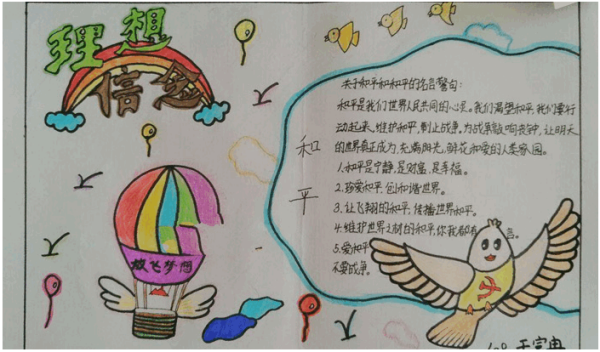 理想
信念
和平
放飞梦网
关于和平和和平的名言警句:
和平是我们世界人民共同的心灵。我们渴望和平,我们要行
动起来,维护和平,制止战争,为战争敲响丧钟,让明天
的世界真正成为充满阳光、鲜花和爱的人类家园。
1.和平是宁静,是财富,是幸福。
2.珍爱和平,创和谐世界。
3.让飞翔的和平,传播世界和平。
4.维护世界之材的和平,你我都有
5.爱和平
不要战争。